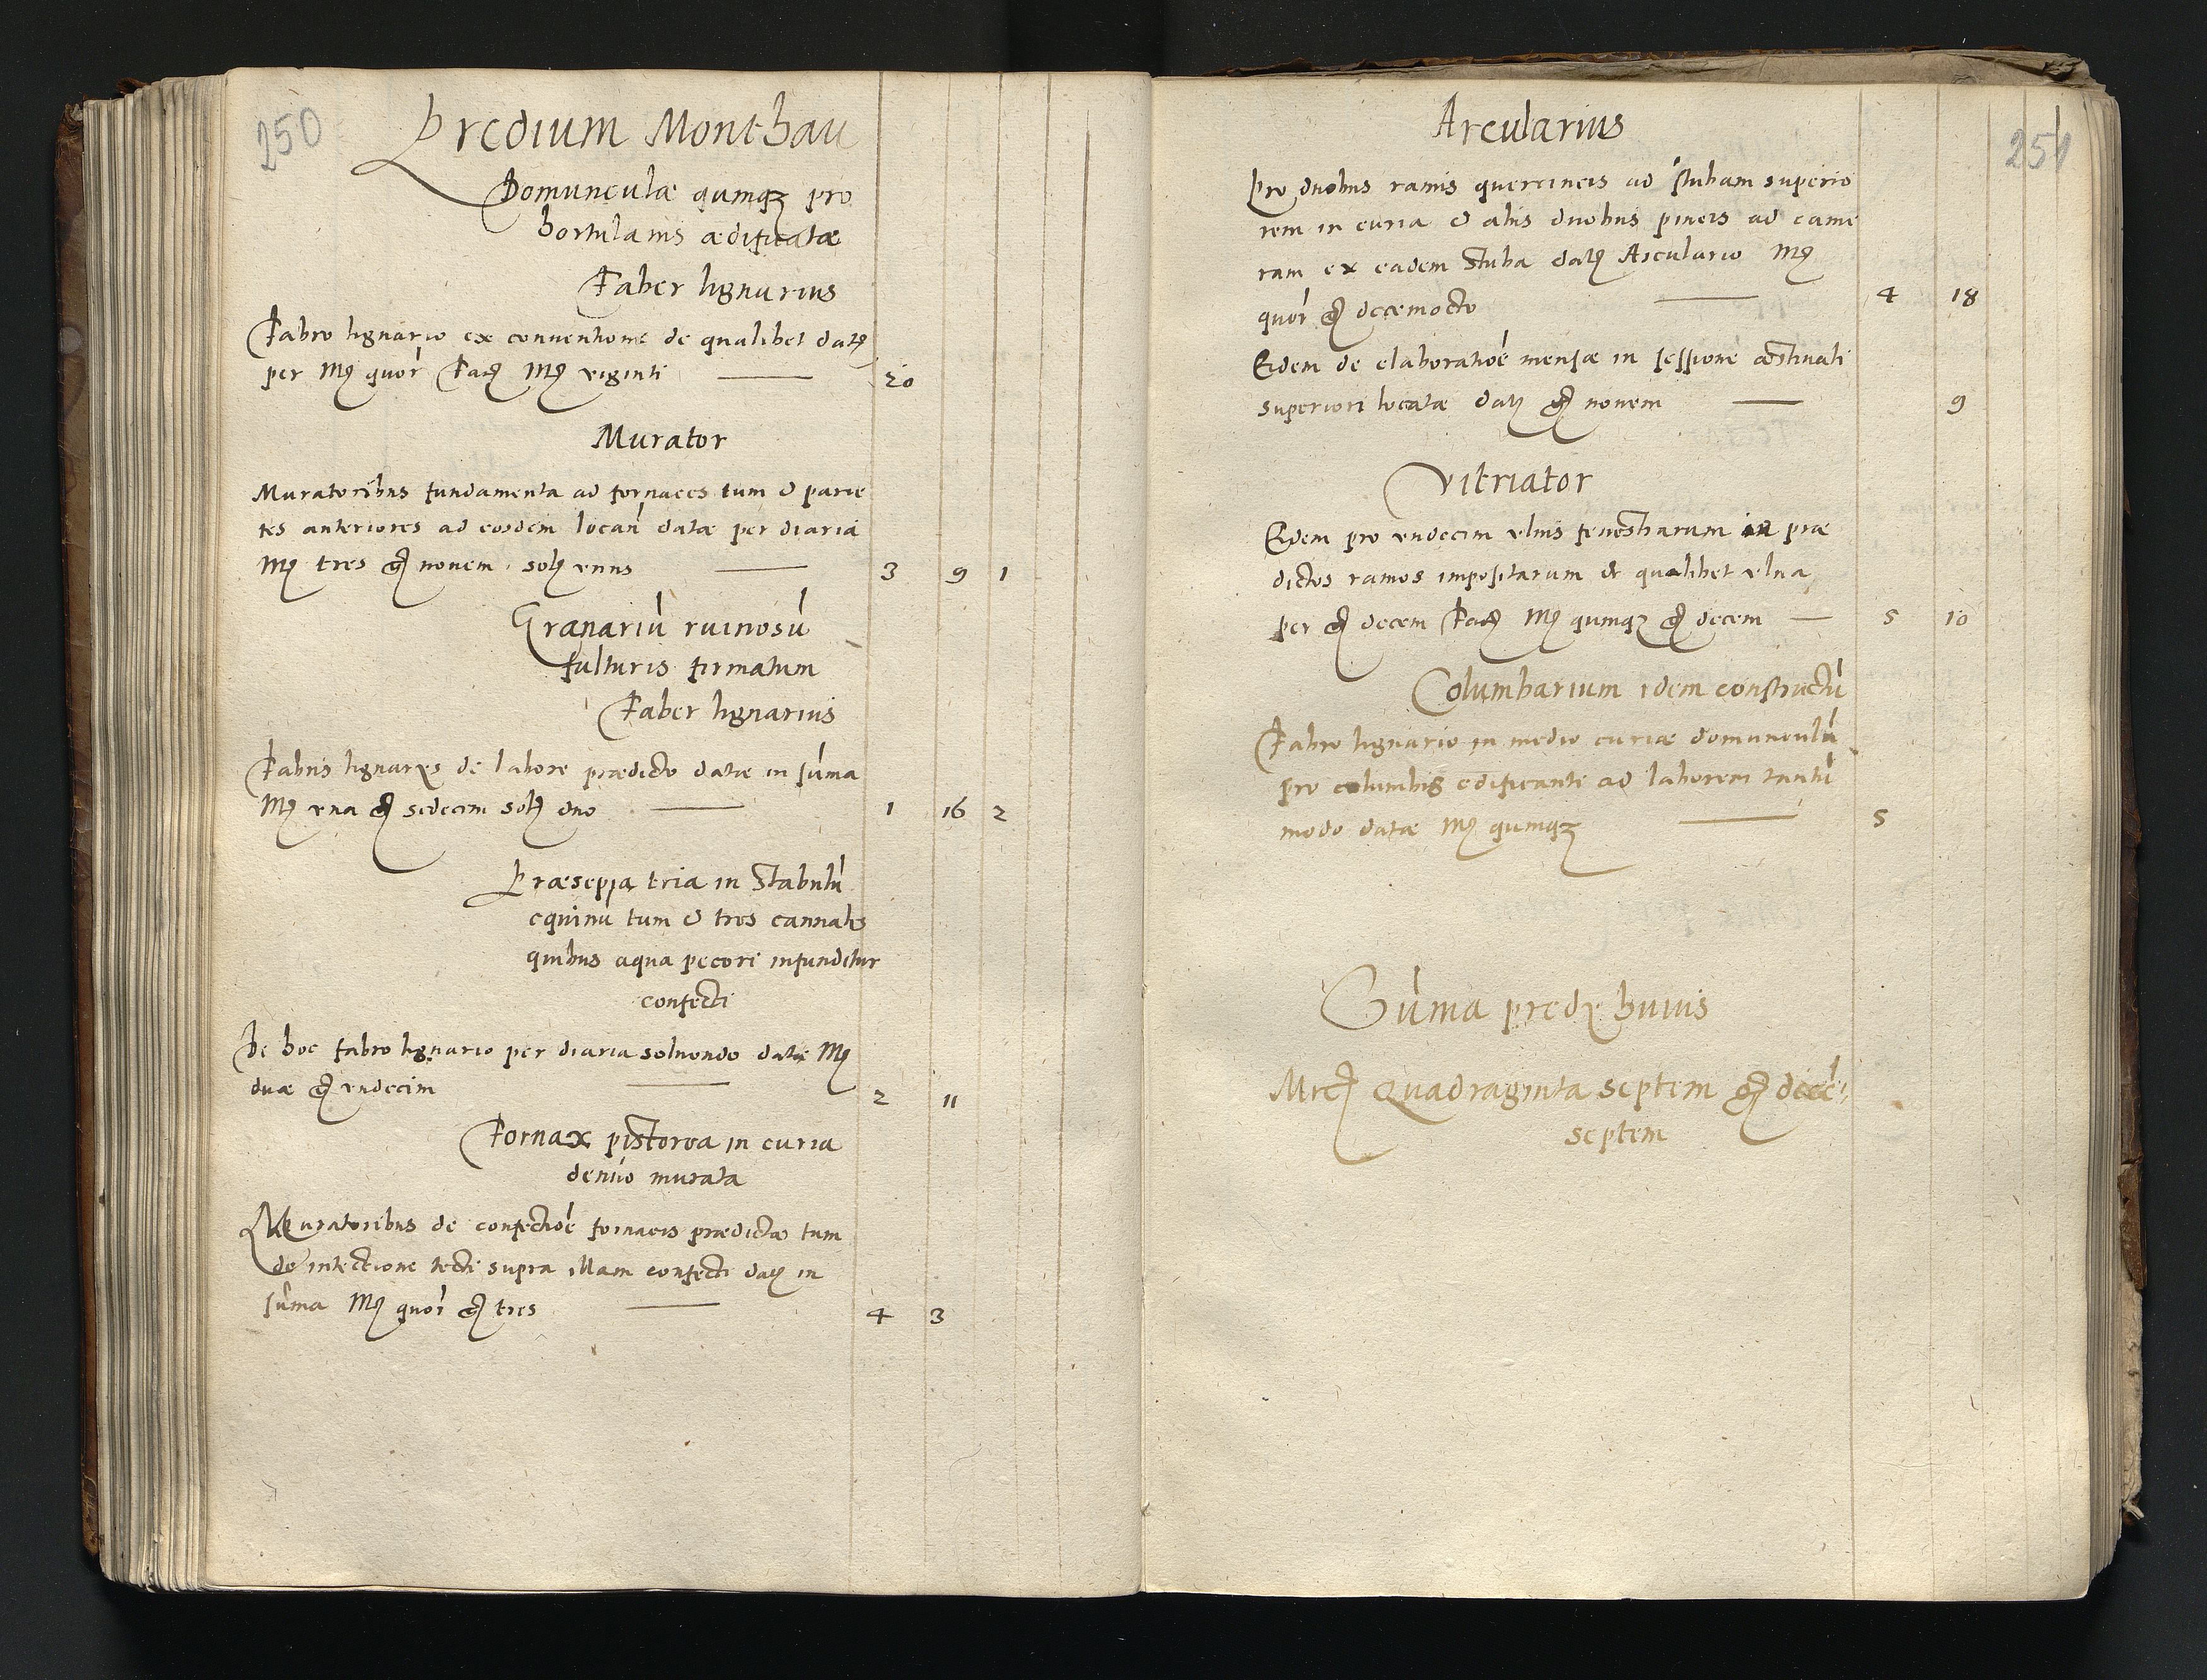 250
Predium Monthau
Domunculæ quinqz pro
hortulanis ædificatæ
Faber lignarius
Fabro lignario ex conuentione de qualibet datȩ
per Mȩ quor Facȩ Mȩ viginti — 20
Murator
Muratoribus fundamenta ad fornaces tum & parie
tes anteriores ad eosdem locan datæ per diaria
Mȩ tres gȩ novem solȩ vnus — 3 9 1
Granariū ruinosū
fulturis firmatum
Faber lignarius
Fabris lignarys de labore prædicto datæ in sūma
Mȩ vna gȩ sedecim solȩ duo — 1 16 2
Præsepia tria in Stabulū
equinū tum & tres cannales
quibus aqua pecori infunditur
confecti
De hoc fabro lignario per diaria soluendo datæ Mȩ
duæ gȩ vndecim — 2 11
Fornax pistorea in curia
denuo murata
Muratoribus de confectioē fornacis prædictæ tum
de intectione tecti supra illam confecti datȩ in
sūma Mȩ quor gȩ tres — 4 3
251
Arcularius
Pro duobus ramis querceineis ad stubam superio
rem in curia & aliis duobus pineis ad came
ram ex eadem stuba datȩ Arculario Mȩ
quor gȩ decemocto — 4 18
Eidem de elaboratioē mensæ in sessione æstiuali
superiori locatæ datȩ gȩ novem — 9
Vitriator
Eidem pro vndecim vlnis fenestrarum in præ
dictos ramos impositarum de qualibet vlna
per gȩ decem Facȩ Mȩ quinqz gȩ decem — 5 10
Columbarium idem constructū
Fabro lignario in medio curiæ domunculū
pro columbis edificanti ad laborem tantū
modo datæ Mȩ quinqz — 5
Sūma predy huius
Mrcȩ Quadraginta septem gȩ decē
septem